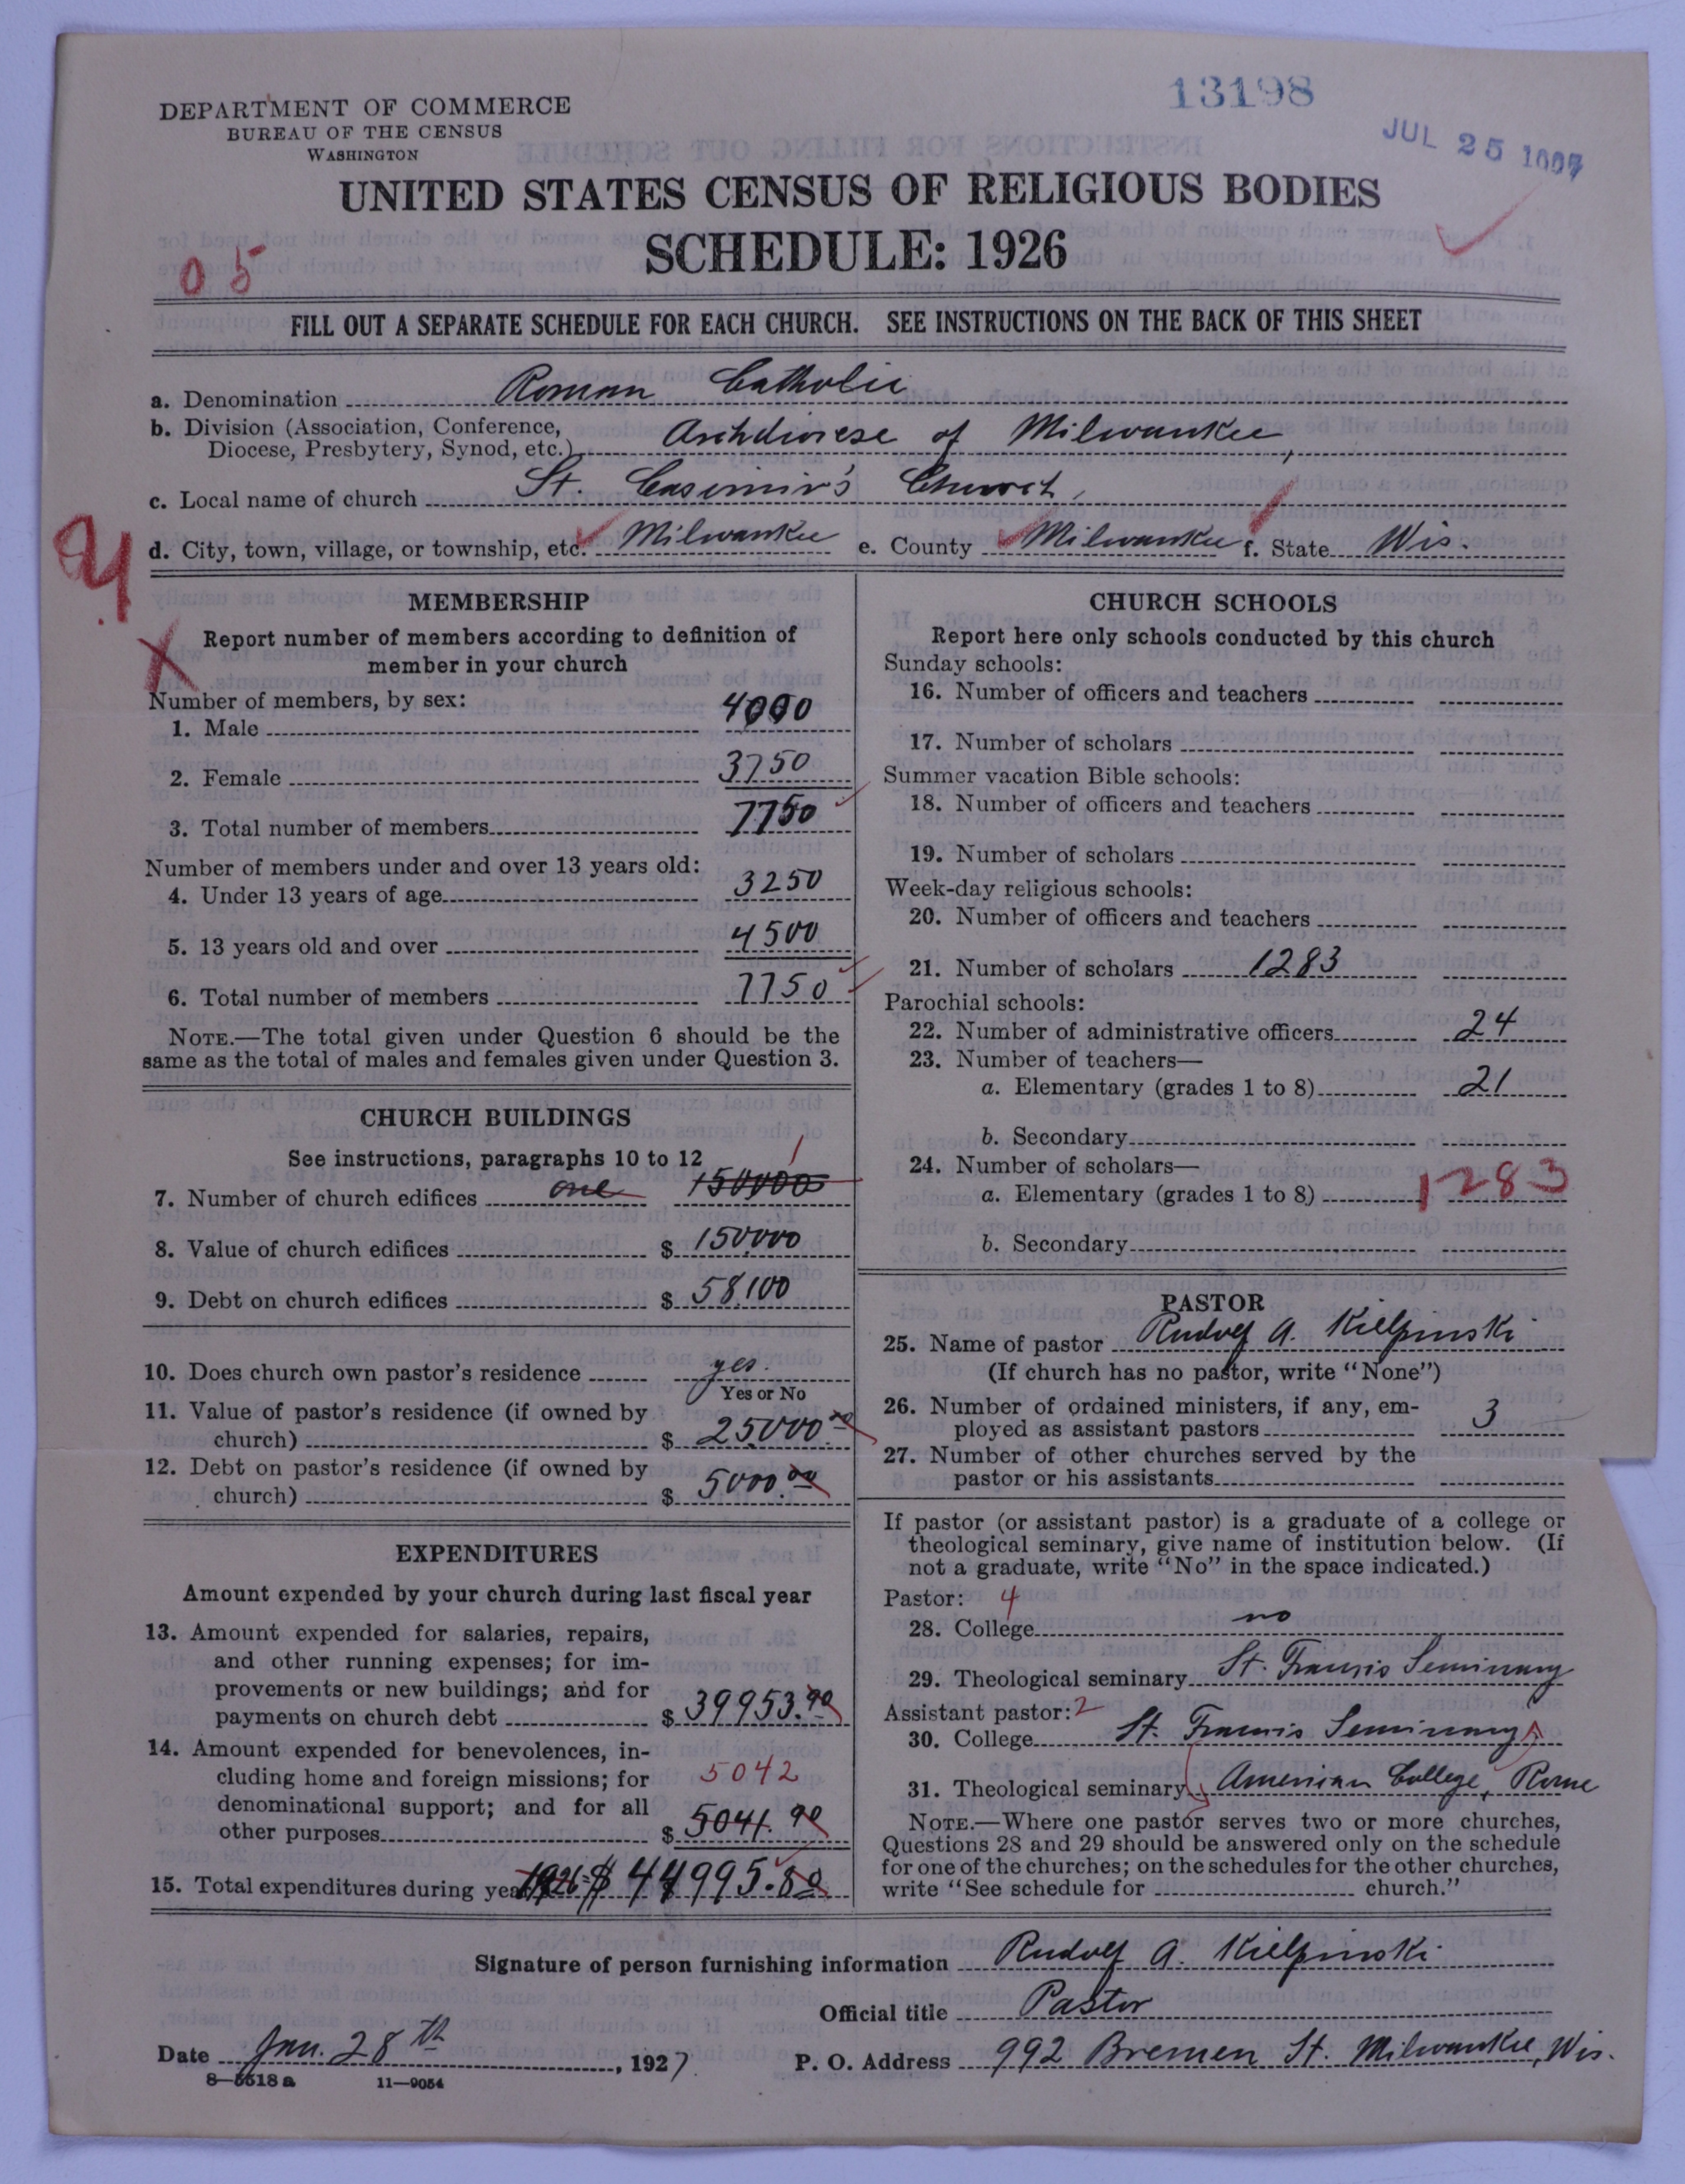 13198
JUL 25
DEPARTMENT OF COMMERCE
BUREAU OF THE CENSUS
WASHINGTON
UNITED STATES CENSUS OF RELIGIOUS BODIES
SCHEDULE: 1926
05
FILL OUT A SEPARATE SCHEDULE FOR EACH CHURCH. SEE INSTRUCTIONS ON THE BACK OF THIS SHEET
a. Denomination Roman Catholic
b. Division (Association, Conference,
Diocese, Presbytery, Synod, etc.) Archdiocese of Milwaukee,
c. Local name of church St. Casimir's Church,
d. City, town, village, or township, etc. Milwaukee e. County Milwaukee f. State Wis.
MEMBERSHIP
Report number of members according to definition of
member in your church
X
Number of members, by sex:
1. Male 4000
2. Female 3750
3. Total number of members 7750
Number of members under and over 13 years old:
4. Under 13 years of age 3250
5. 13 years old and over 4500
6. Total number of members 7750
NOTE.—The total given under Question 6 should be the
same as the total of males and females given under Question 3.
CHURCH BUILDINGS
See instructions, paragraphs 10 to 12
1
7. Number of church edifices one 150000
8. Value of church edifices $ 150000
9. Debt on church edifices $ 58,100
10. Does church own pastor's residence yes.
Yes or No
11. Value of pastor's residence (if owned by
church) $ 25000.00
12. Debt on pastor's residence (if owned by
church) $ 5000.00
EXPENDITURES
Amount expended by your church during last fiscal year
13. Amount expended for salaries, repairs,
and other running expenses; for im-
provements or new buildings; and for
payments on church debt $ 39953.90
14. Amount expended for benevolences, in-
cluding home and foreign missions; for 5042
denominational support; and for all
other purposes $ 5041.90
15. Total expenditures during year 1926 $ 44995.80
CHURCH SCHOOLS
Report here only schools conducted by this church
Sunday schools:
16. Number of officers and teachers
17. Number of scholars
Summer vacation Bible schools:
18. Number of officers and teachers
19. Number of scholars
Week-day religious schools:
20. Number of officers and teachers
21. Number of scholars 1283
Parochial schools:
22. Number of administrative officers 24
23. Number of teachers—
a. Elementary (grades 1 to 8) 21
b. Secondary
24. Number of scholars—
a. Elementary (grades 1 to 8) 1283
b. Secondary
PASTOR
25. Name of pastor Rudolf A. Kielpinski
(If church has no pastor, write "None")
26. Number of ordained ministers, if any, em-
ployed as assistant pastors 3
27. Number of other churches served by the
pastor or his assistants
If pastor (or assistant pastor) is a graduate of a college or
theological seminary, give name of institution below. (If
not a graduate, write "No" in the space indicated.)
Pastor: 4
28. College no
29. Theological seminary St. Francis Seminary
Assistant pastor: 2
30. College St. Francis Seminary
31. Theological seminary American College, Rome
NOTE.—Where one pastor serves two or more churches,
Questions 28 and 29 should be answered only on the schedule
for one of the churches; on the schedules for the other churches,
write "See schedule for church."
Signature of person furnishing information Rudolf A. Kielpinski
Official title Pastor
Date Jan. 28th, 1927 P. O. Address 992 Bremen St. Milwaukee, Wis.
8—5518 a 11—9054